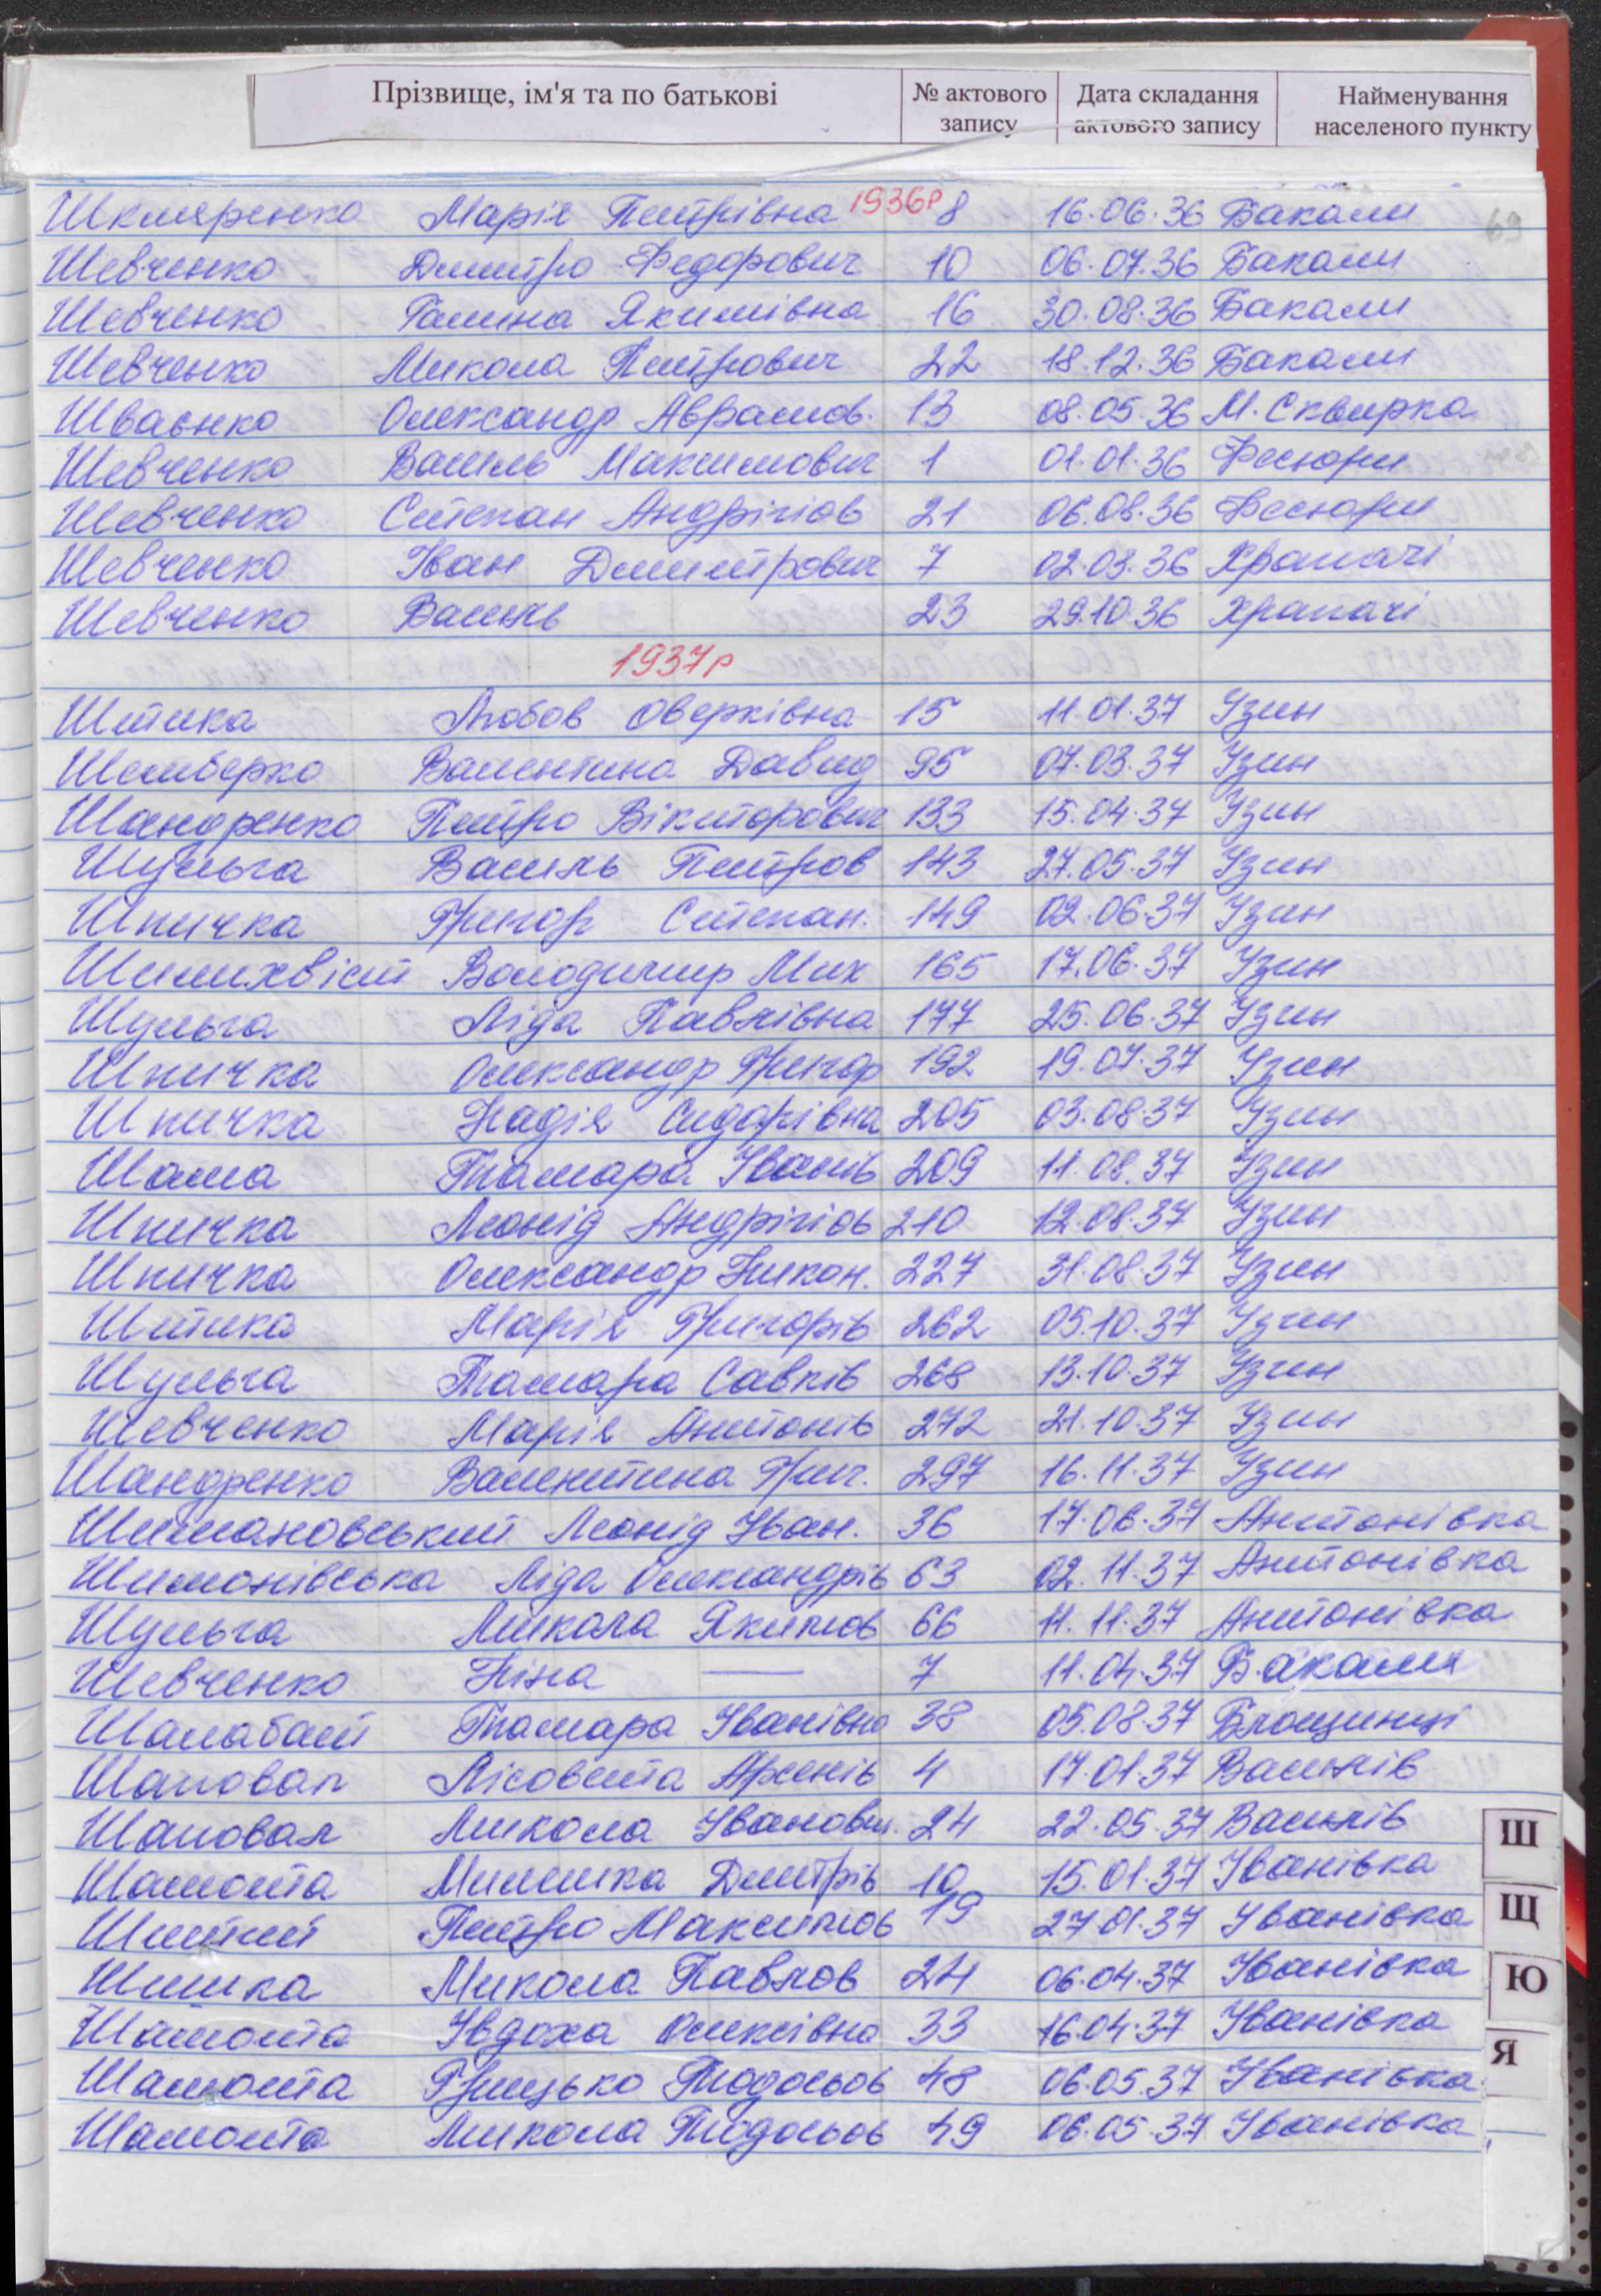 Прізвище, ім'я та по батькові № актового запису Дата складання актового запису Найменування населеного пункту
69
Шкляренко Марія Петрівна 1936р 8 16.06.36 Бакали
Шевченко Дмитро Федорович 10 06.07.36 Бакали
Шевченко Галина Якимівна 16 30.08.36 Бакали
Шевченко Микола Петрович 22 18.12.36 Бакали
Шваєнко Олександр Аврамов. 13 08.05.36 М. Сквирка
Шевченко Василь Максимович 1 01.01.36 Фесюри
Шевченко Степан Андріїов 21 06.08.36 Фесюри
Шевченко Іван Дмитрович 7 02.03.36 Храпачі
Шевченко Василь 23 29.10.36 Храпачі
1937р
Шитика Любов Оверківна 15 11.01.37 Узин
Шемберко Валентина Давид 95 07.03.37 Узин
Шандренко Петро Вікторович 133 15.04.37 Узин
Шульга Василь Петров 143 27.05.37 Узин
Шпичка Григор Степан. 149 02.06.37 Узин
Шилихвіст Володимир Мих 165 17.06.37 Узин
Шульга Ліда Павлівна 177 25.06.37 Узин
Шпичка Олександр Григор 192 19.07.37 Узин
Шпичка Надія Сидорівна 205 03.08.37 Узин
Шама Тамара Іванів 209 11.08.37 Узин
Шпичка Леонід Андріїов 210 12.08.37 Узин
Шпичка Олександр Никон. 227 31.08.37 Узин
Шитика Марія Григорів 262 05.10.37 Узин
Шульга Тамара Савків 268 13.10.37 Узин
Шевченко Марія Антонів 272 21.10.37 Узин
Шандренко Валентина Григ. 297 16.11.37 Узин
Шимановський Леонід Іван. 36 17.06.37 Антонівка
Шимонівська Ліда Олександрів 63 02.11.37 Антонівка
Шульга Микола Якимов 66 11.11.37 Антонівка
Шевченко Ніна — 7 11.04.37 Бакали
Шалабай Тамара Іванівна 38 05.08.37 Блощинці
Шаповал Лісовета Арсенів 4 17.01.37 Василів
Шаповал Микола Іванович. 24 22.05.37 Василів
Шамота Дмитрів 10 15.01.37 Іванівка
Петро Максимов 19 27.01.37 Іванівка
Шишка Микола Павлов 24 06.04.37 Іванівка
Шамота Івдоха Олексівна 33 16.04.37 Іванівка
Шамота Грицько Тодосьов 48 06.05.37 Іванівка
Шамота Микола Тодосьов 49 06.05.37 Іванівка
Ш
Щ
Ю
Я